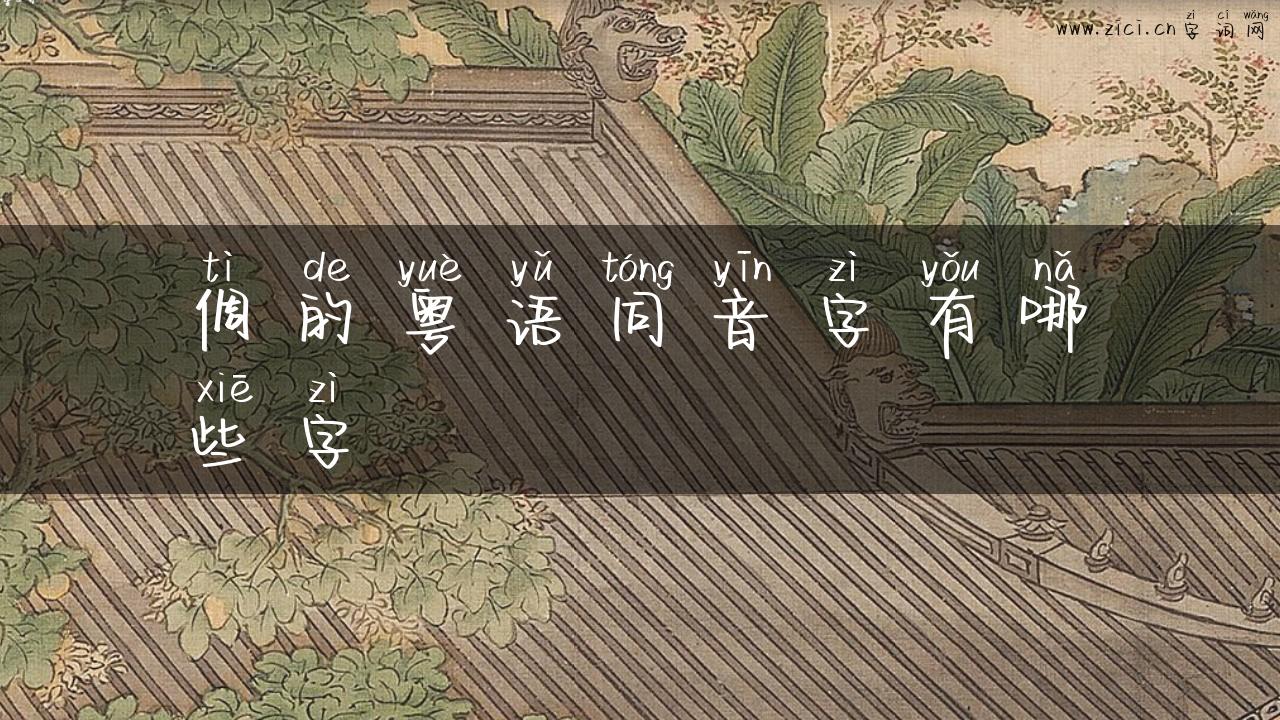 www.zici.cn zì cí wǎng
字词网
tì de yuè yǔ tóng yīn zì yǒu nǎ
倜的粤语同音字有哪
xiē zì
些字